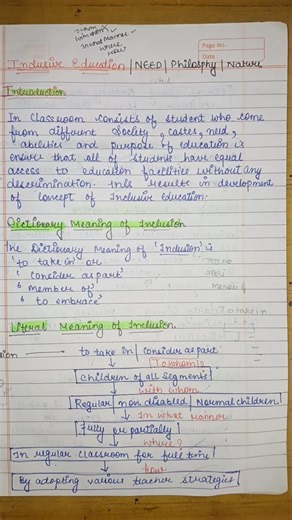 whom
with whom
In what manner
where
how
Page No.
Date
Inclusive Education | NEED | Philosphy | Nature
Introduction
In Classroom consists of student who come
from different society, castes, need,
abilities and purpose of education is
ensure that all of students have equal
access to education facilities without any
descrimination. This results in development
of concept of Inclusive Education.
Dictionary Meaning of Inclusion
The Dictionary Meaning of 'Inclusion' is
'to take in' or
'consider as part'
'member of'
'to embrace'
Literal Meaning of Inclusion
to take in / consider as part
[To whom?]
Children of all segments
with whom
Regular / non disabled / Normal children
In what manner
Fully or partially
where?
In regular classroom for full time
how
By adopting various teacher strategies